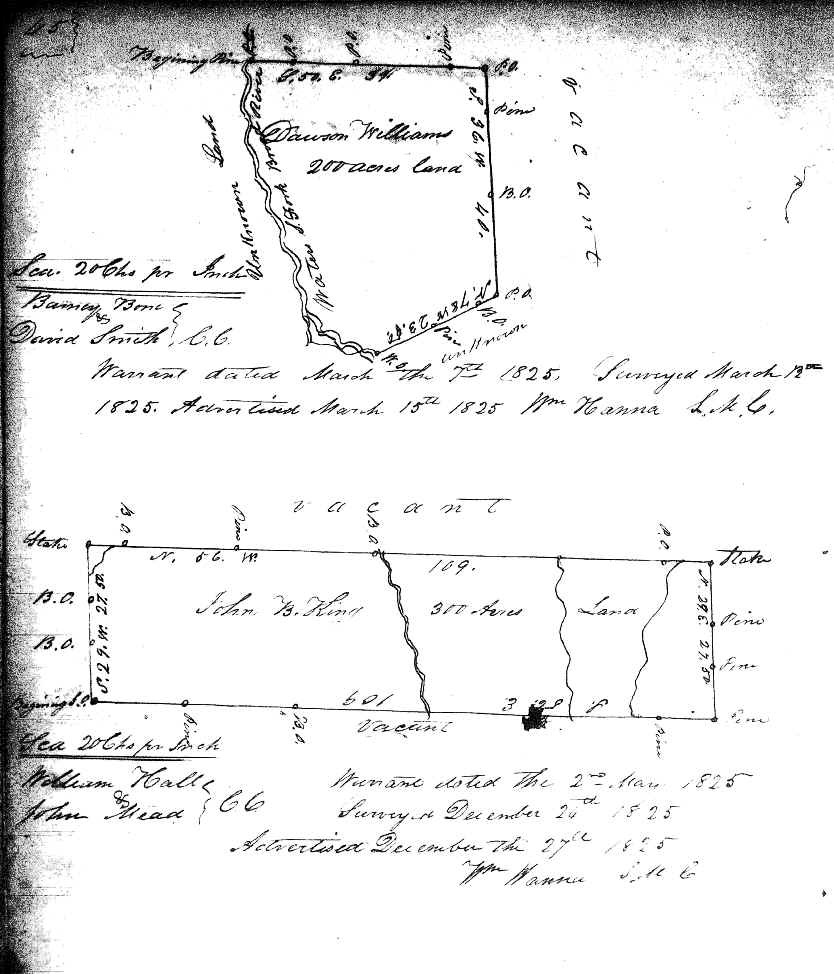 45
Begining Pine
B.O.
P.O.
Pine
P.O.
S. 52. E. 34
Pine
S. 36. W. 40.
B.O.
Vacant
Dawson Williams
200 acres land
Land
Unknown
Waters S. Fork Broad River
P.O.
N. 78 W. 23.
B.O.
Pine
Unknown
Sca. 20 Chs pr Inch
Barney Bone
&
David Smith } C.C.
Warrant dated March the 7th 1825. Surveyed March 12th
1825. Advertised March 15th 1825 Wm Hanna S.M.C.
vacant
Stake
B.O
Pine
B.O
P.O.
Stake
N. 56. W. 109.
B.O.
B.O.
S. 29. W. 27.50
John B. King 300 Acres Land
N. 29. E. 27.50
Pine
Pine
Begining
Pine
B.O.
109
S
Pine
Pine
Vacant
Sca 20 Chs pr Inch
William Hall
&
John Mead } CC
Warrant dated the 2nd May 1825
Surveyed December 24th 1825
Advertised December the 27th 1825
Wm Hanna S.M C